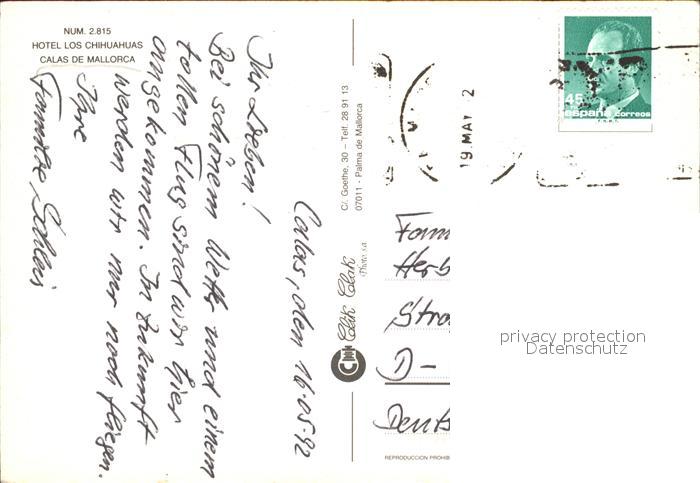 NUM. 2.815
HOTEL LOS CHIHUAHUAS
CALAS DE MALLORCA
Calas, den 16.05.92
Ihr Lieben!
Bei schönem Wetter und einem
tollen Flug sind wir hier
angekommen. In Zukunft
werden wir nur noch fliegen.
Ihre
Familie
C/. Goethe, 30 - Telf. 28 91 13
07011 - Palma de Mallorca
Clik Clak
Photo, s.a.
19. MAY 2
45
españa correos
Fam
Herb
Stra
D-
Deuts
privacy protection
Datenschutz
REPRODUCCION PROHIB